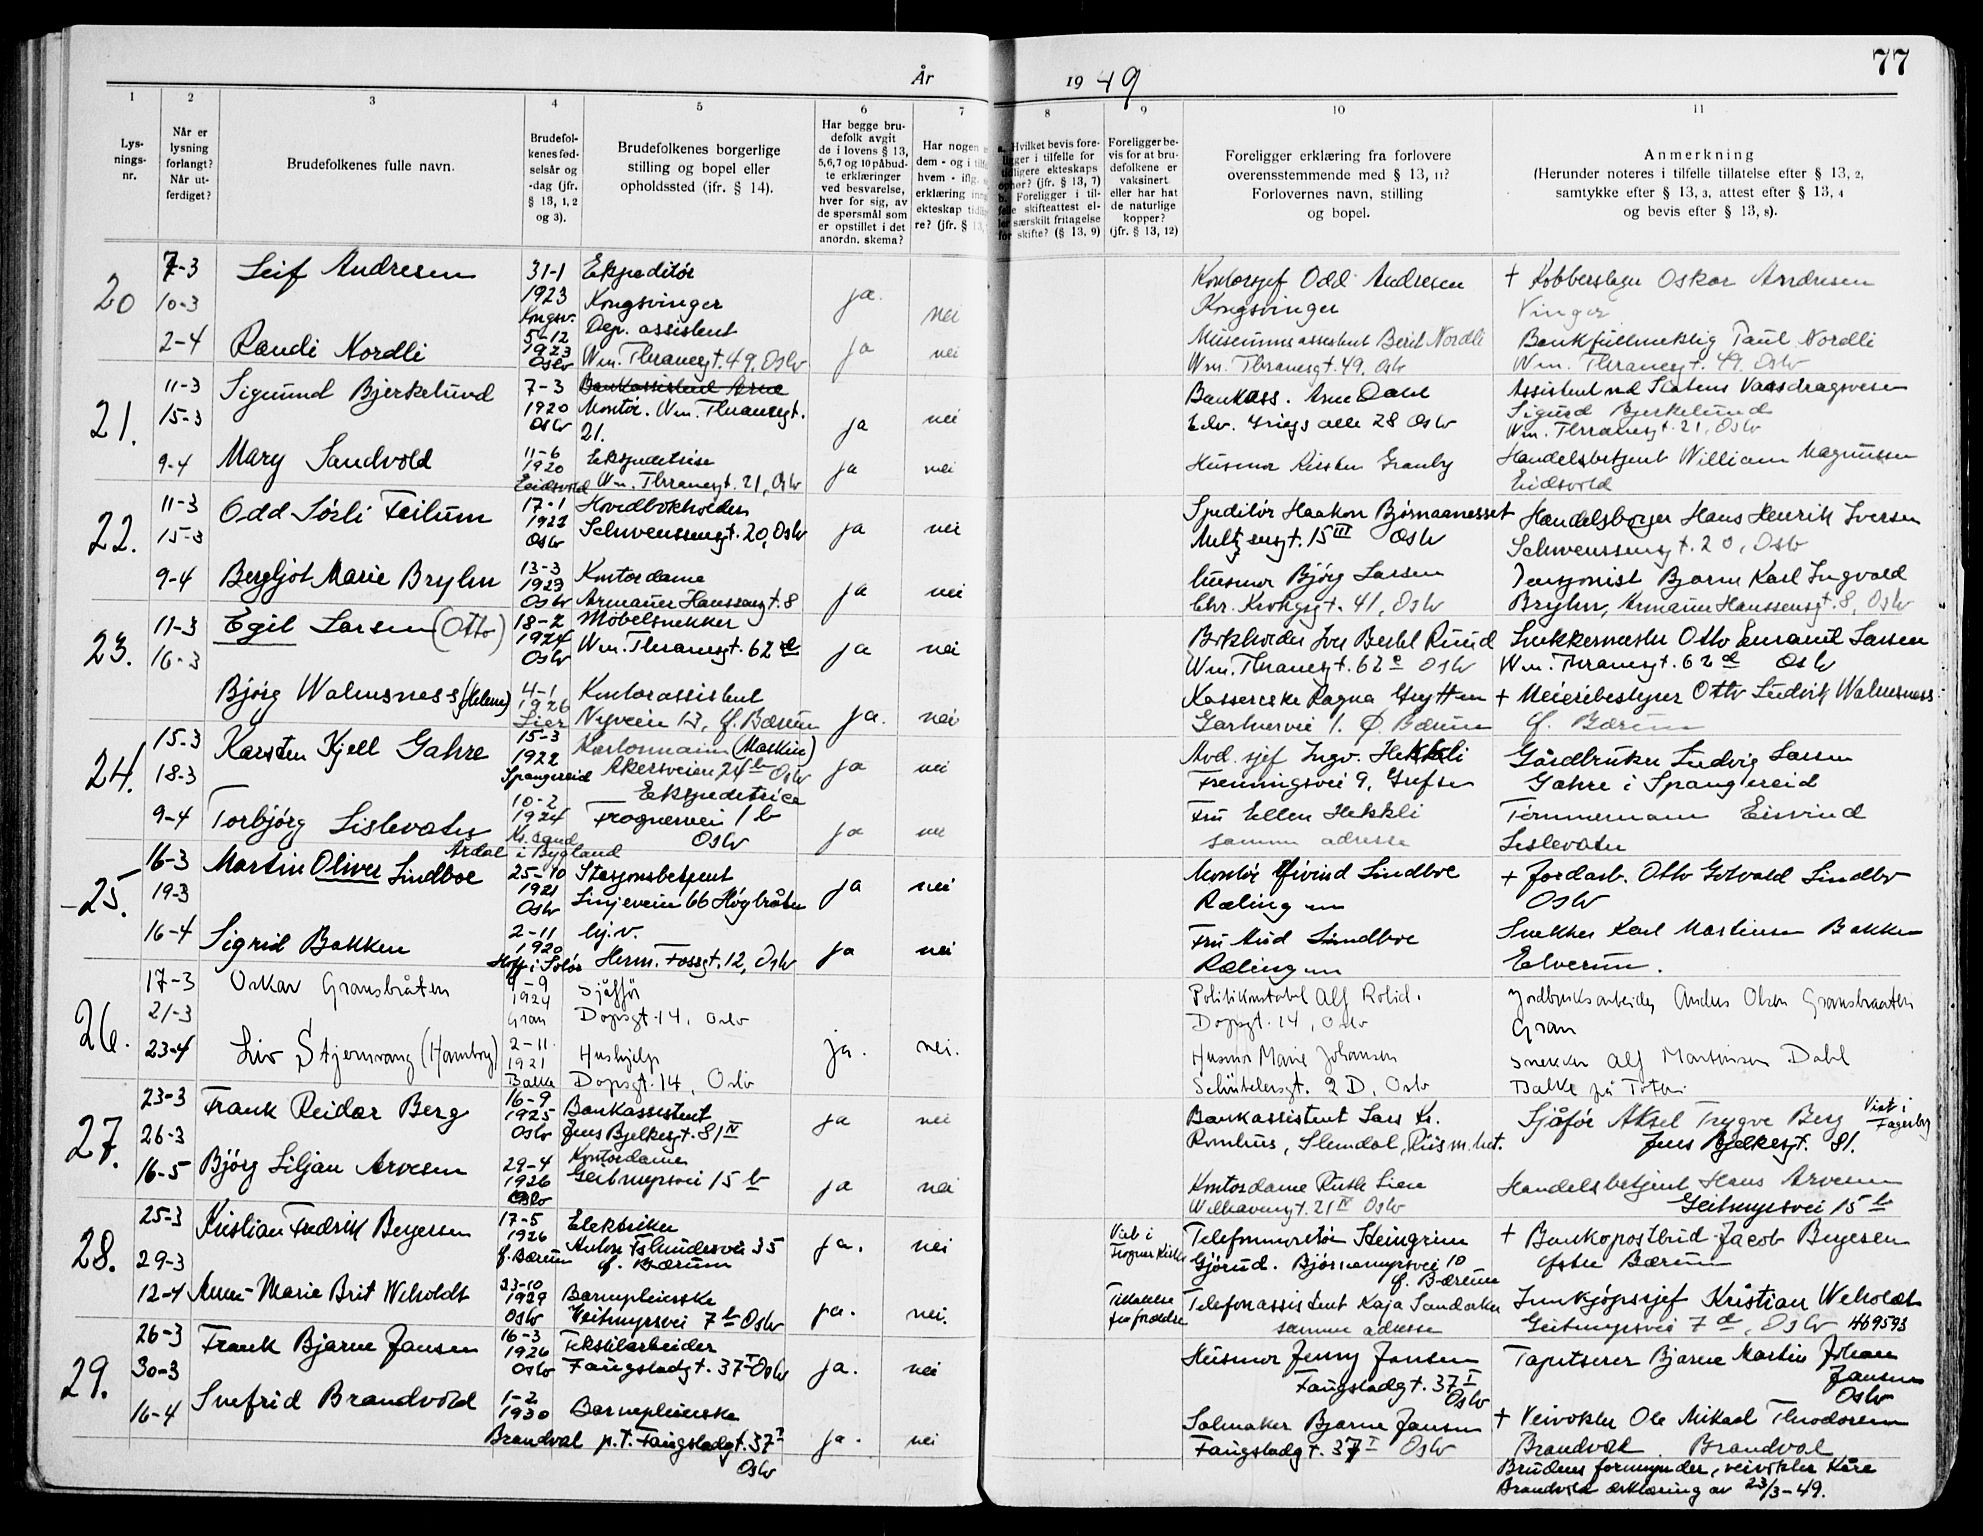 År
19 49
77
1
2
3
4
5
6
7
8
9
10
11
Lys-
nings-
nr.
Når er
lysning
forlangt?
Når ut-
ferdiget?
Brudefolkenes fulle navn.
Brudefol-
kenes fød-
selsår og
-dag (jfr.
§ 13, 1, 2
og 3).
Brudefolkenes borgerlige
stilling og bopel eller
opholdssted (jfr. § 14).
Har begge bru-
defolk avgit
de i lovens § 13,
5,6,7 og 10 påbud-
te erklæringer
ved besvarelse,
hver for sig, av
de spørsmål som
er opstillet i det
anordn. skema?
Har nogen
dem - og i
hvem - iflg.
erklæring
ekteskap
re? (jfr. § 13,
a. Hvilket bevis fore-
ligger i tilfelle for
tidligere ekteskaps
ophør? (jfr. § 13, 7)
b. Foreligger i til-
felle skifteattest el-
ler særskilt fritagelse
for skifte? (§ 13, 9)
Foreligger be-
vis for at bru-
defolkene er
vaksinert
eller har hat
de naturlige
kopper?
(jfr. § 13, 12)
Foreligger erklæring fra forlovere
overensstemmende med § 13, 11?
Forlovernes navn, stilling
og bopel.
Anmerkning
(Herunder noteres i tilfelle tillatelse efter § 13, 2,
samtykke efter § 13, 3, attest efter § 13, 4
og bevis efter § 13, 8).
20
7-3
10-3
2-4
Leif Andresen
31-1
1923
Kongsv.
Ekspeditør
Kongsvinger
ja.
nei
Kontorsjef Odd Andresen
Kongsvinger
+ Kobberslager Oskar Andresen
Vinger
Randi Nordli
5-12
1923
Oslo
Dep. assistent
Wm. Thranesgt. 49, Oslo
ja
nei
Museumsassistent Berit Nordli
Wm. Thranesgt. 49, Oslo
Bankfullmektig Paul Nordli
Wm. Thranesgt. 49, Oslo
21.
11-3
15-3
9-4
Sigmund Bjerkelund
7-3
1920
Oslo
Bankassistent Arne
Montør. Wm. Thranesgt.
21.
ja
nei
Bankass. Arne Dahl
Edv. Griegs alle 28 Oslo
Assistent ved Statens Vassdragsvesen
Sigurd Bjerkelund
Wm. Thranesgt. 21, Oslo
Mary Sandvold
11-6
1920
Eidsvold
Ekspeditrise
Wm. Thranesgt. 21, Oslo
ja
nei
Husmor Kirsten Granby
Handelsbetjent William Magnussen
Eidsvold
22.
11-3
15-3
9-4
Odd Sørli Feilum
17-1
1922
Oslo
Hovedbokholder
Schwenssensgt. 20, Oslo
ja
nei
Speditør Haakon Bjørnaanesset
Meltzersgt. 15 III Oslo
Handelsborger Hans Henrik Iversen
Schwenssensgt. 20, Oslo
Bergljot Marie Bryhn
13-3
1923
Oslo
Kontordame
Armauer Hanssensgt. 8
ja
nei
husmor Bjørg Larsen
Chr. Krohgsgt. 41, Oslo
Pensjonist Bjarne Karl Ingvald
Bryhn, Armauer Hanssensgt. 8, Oslo
23.
11-3
16-3
Egil Larsen (Otto)
18-2
1924
Oslo
Møbelsnekker
Wm. Thranesgt. 62 d
ja
nei
Bokholder Iver Bertel Ruud
Wm. Thranesgt. 62 e Oslo
Snekkermester Otto Emanuel Larsen
Wm. Thranesgt. 62 d Oslo
Bjørg Walmsness (Helene)
4-1
1926
Lier
Kontorassistent
Nyveien 13, Ø. Bærum
ja.
nei
Kassererske Ragna Grytten
Gartnervei 1. Ø. Bærum
+ Meieribestyrer Otto Ludvik Walmsness
Ø. Bærum
24.
15-3
18-3
9-4
Karsten Kjell Gahre
15-3
1922
Spangereid
Kartonmann (Maskin)
Akersveien 24 b Oslo
ja
nei
Avd. sjef Ingv. Hekkli
Frenningsvei 9, Grefsen
Gårdbruker Ludvig Larsen
Gahre i Spangereid
Torbjørg Lislevatn
10-2
1924
Kr. sand
Årdal i Bygland
Ekspeditrice
Frognervei 1 b
Oslo
ja
nei
Fru Ellen Hekkli
samme adresse
Tømmermann Eivind
Lislevatn
25.
16-3
19-3
16-4
Martin Oliver Lindboe
25-10
1921
Oslo
Stasjonsbetjent
Linjeveien 66 Høybråten
ja
nei
Montør Eivind Lindboe
Rælingen
+ Jordarb. Otto Gotvald Lindbo
Oslo
Sigrid Bakken
2-11
1920
Hof i Solør
hj.v.
Herm. Fossgt. 12, Oslo
ja
nei
Fru Aud Lindboe
Rælingen
Snekker Karl Martinsen Bakken
Elverum.
26.
17-3
21-3
23-4
Oskar Gransbråten
9-9
1924
Gran
Sjåffør
Dopsgt. 14, Oslo
Politikonstabel Alf Rolid.
Dopsgt. 14, Oslo
Jordbruksarbeider Anders Olsen Gransbraaten
Gran
Liv Stjernvang (Hamborg)
2-11
1921
Balke
Hushjelp
Dopsgt. 14, Oslo
ja.
nei.
Husmor Marie Johansen
Schübelersgt. 2 D, Oslo
Snekker Alf Martinsen Dahl
Balke på Toten
27.
23-3
26-3
16-5
Frank Reidar Berg
16-9
1925
Oslo
Bankassistent
Jens Bjelkesgt. 81 IV
ja
nei
Bankassistent Lars Kr.
Romhus, Slemdal, Riis m. het.
Sjåfør Aksel Trygve Berg
Jens Bjelkesgt. 81.
Viet i
Fagerborg
Bjørg Liljan Arvesen
29-4
1926
Oslo
Kontordame
Geitmyrsvei 15 b
ja
nei
Kontordame Ruth Lien
Welhavensgt. 21 IV Oslo
Handelsbetjent Hans Arvesen
Geitmyrsvei 15 b
28.
25-3
29-3
12-4
Kristian Fredrik Beyersen
17-5
1926
Ø. Bærum
Elektriker
Anton Tschudisvei 35
Ø. Bærum
ja.
nei
Viet i
Frogner Kirke
Telefonmontør Steingrim
Gjørud. Bjørnemyrsvei 10
Ø. Bærum
+ Bankpostbud Jacob Beyersen
Østre Bærum
Anne-Marie Brit Weholdt
23-10
1929
Oslo
Barnepleierske
Geitmyrsvei 7 d Oslo
ja.
nei.
Tillatelse
fra foreldre
Telefonassistent Kaja Sandaker
samme adresse
Innkjøpssjef Kristian Weholdt
Geitmyrsvei 7 d, Oslo 469593
29.
26-3
30-3
16-4
Frank Bjarne Jansen
16-3
1926
Oslo
Tekstilarbeider
Faugstadgt. 37 I Oslo
ja.
nei
Husmor Jenny Jansen
Faugstadgt. 37 I
Oslo
Tapetserer Bjarne Martin Johan
Jansen
Oslo
Snefrid Brandvold
1-2
1930
Brandval
Barnepleierske
p.t. Faugstadgt. 37 I
Oslo
ja.
nei
Salmaker Bjarne Jansen
Faugstadgt. 37 I Oslo
+ Veivokter Ole Mikael Theodorsen
Brandvol Brandval
Brudens formynder, veivokter Kåre
Brandvold erklæring av 23/3-49.